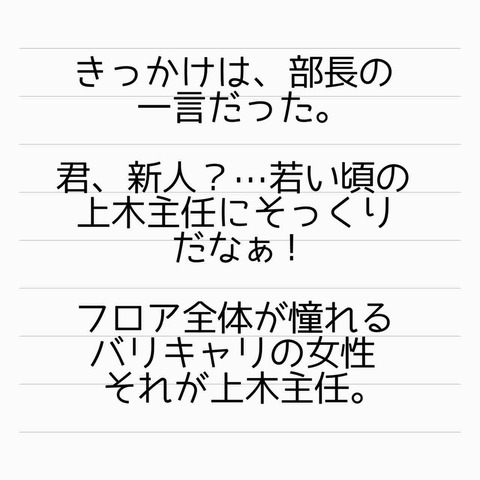 きっかけは、部長の
一言だった。
君、新人？…若い頃の
上木主任にそっくり
だなぁ！
フロア全体が憧れる
バリキャリの女性
それが上木主任。